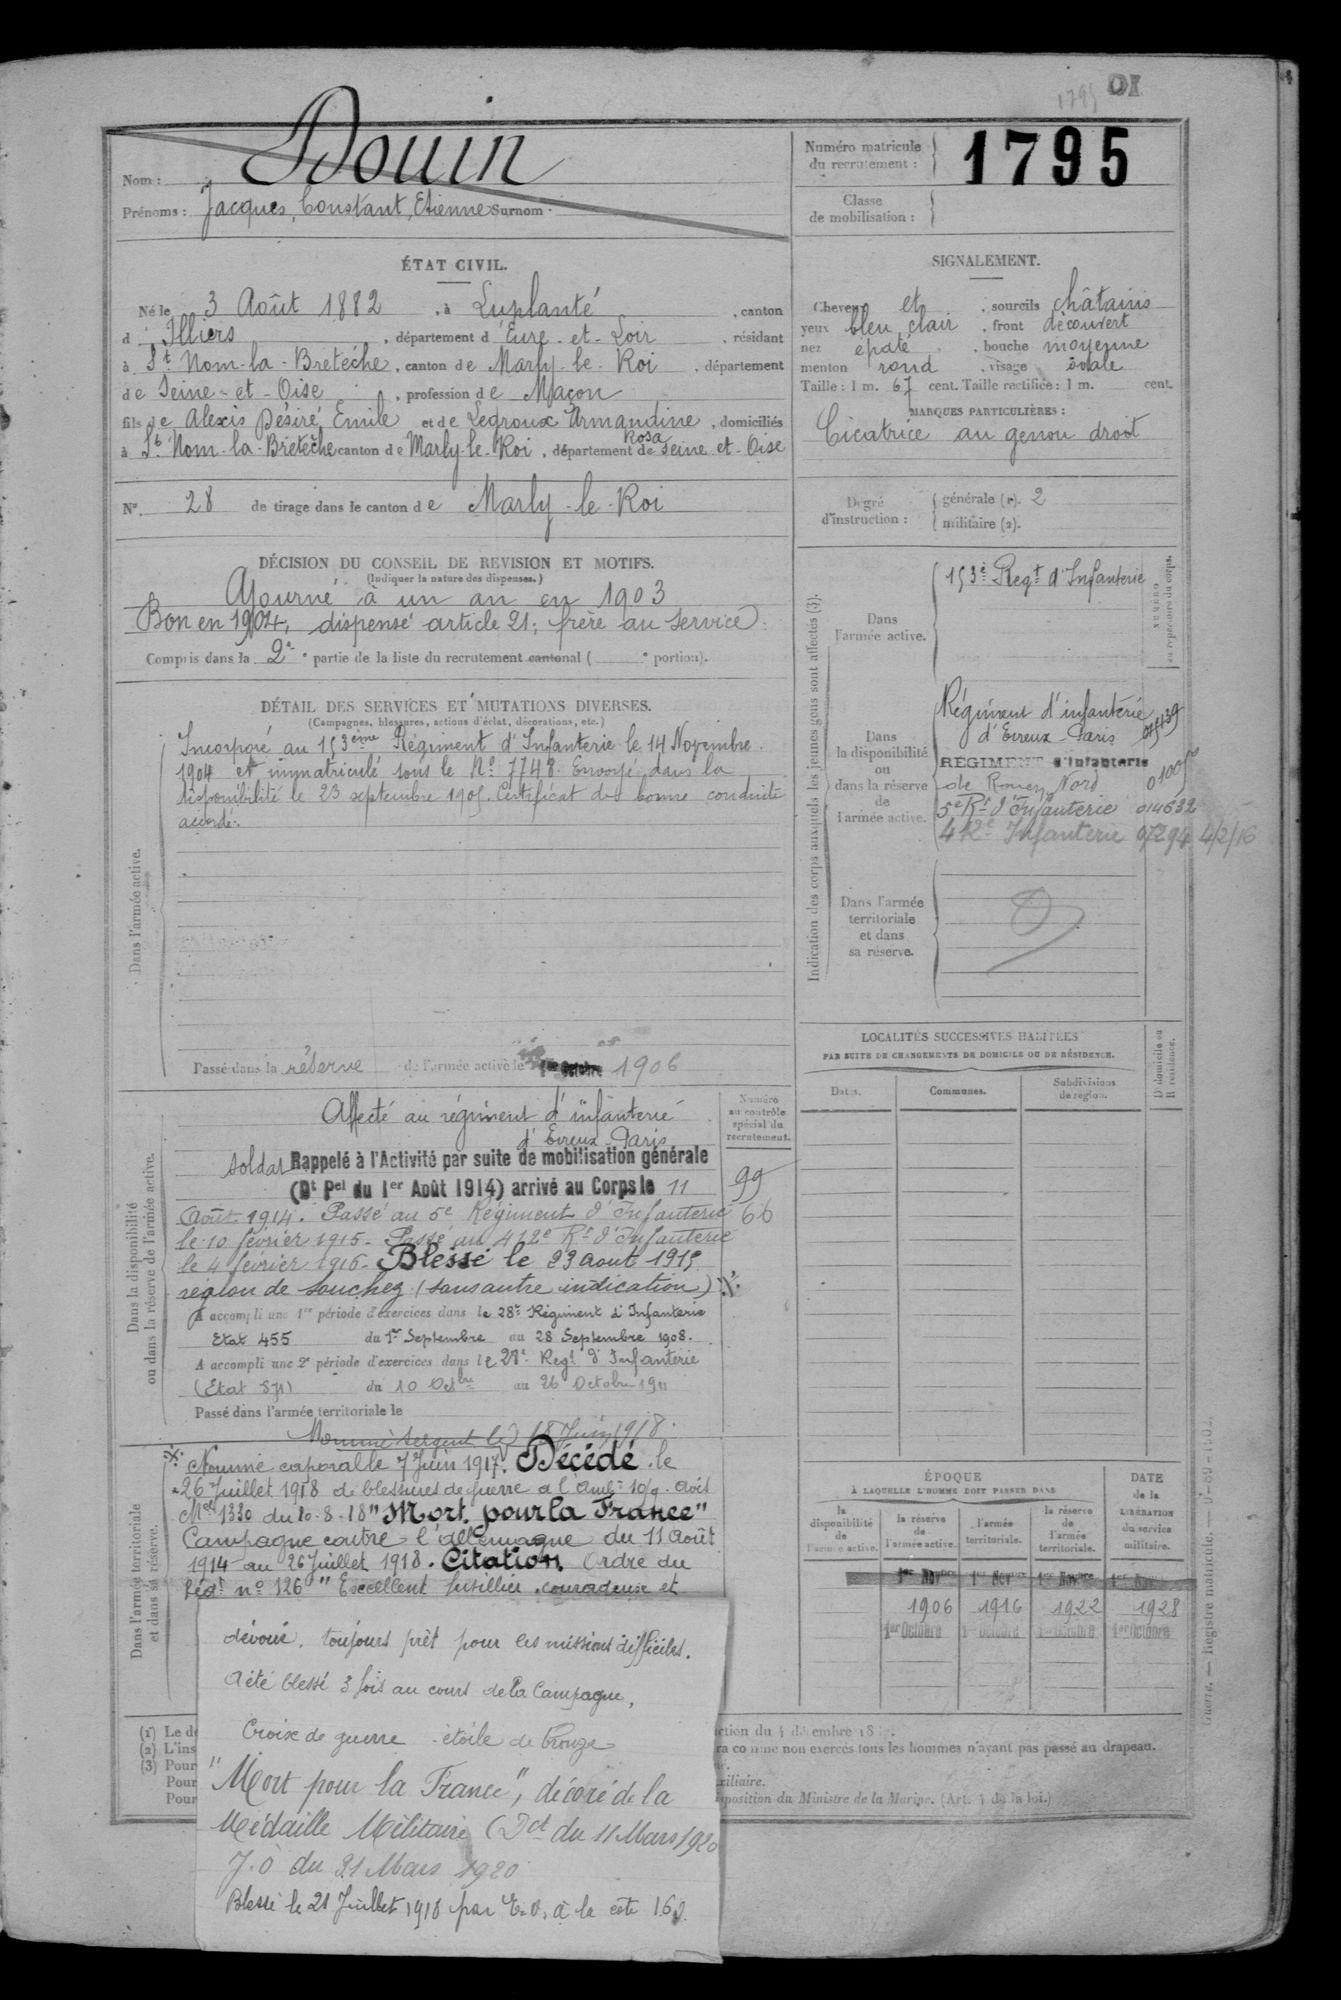 1795 IO
Douin
Nom :
Prénoms : Jacques, Constant, Etienne Surnom :
Numéro matricule
du recrutement : 1795
Classe
de mobilisation :
ÉTAT CIVIL.
Né le 3 Août 1882, à Luplanté, canton
d'Illiers, département d'Eure-et-Loir, résidant
à St Nom-la-Bretèche, canton de Marly-le-Roi, département
de Seine-et-Oise, profession de Maçon
fils de Alexis Désiré, Emile et de Legroux Armandine, domiciliés
Rosa
à St Nom-la-Bretèche canton de Marly-le-Roi, département de Seine-et-Oise
N° 28 de tirage dans le canton de Marly-le-Roi
SIGNALEMENT.
Cheveux et sourcils châtains
yeux bleu clair, front découvert
nez épaté, bouche moyenne
menton rond, visage ovale
Taille : 1 m. 67 cent. Taille rectifiée : 1 m. cent.
MARQUES PARTICULIÈRES :
Cicatrice au genou droit
Degré
d'instruction :
générale (1). 2
militaire (2).
DÉCISION DU CONSEIL DE REVISION ET MOTIFS.
(Indiquer la nature des dispenses.)
Ajourné à un an en 1903
Bon en 1904, dispensé article 21; frère au service.
Compris dans la 2e partie de la liste du recrutement cantonal ( e portion).
DÉTAIL DES SERVICES ET MUTATIONS DIVERSES.
(Campagnes, blessures, actions d'éclat, décorations, etc.)
Dans l'armée active.
Incorporé au 153ème Régiment d'Infanterie le 14 Novembre
1904 et immatriculé sous le N° 7748. Envoyé dans la
disponibilité le 23 septembre 1905. Certificat de bonne conduite
accordé.
Passé dans la réserve de l'armée active le 1er Octobre 1906
Dans la disponibilité
ou dans la réserve de l'armée active.
Numéro
au contrôle
spécial du
recrutement.
Affecté au régiment d'infanterie
d'Evreux-Paris
soldat Rappelé à l'Activité par suite de mobilisation générale
(Dt Pel du 1er Août 1914) arrivé au Corps le 11
99
Août 1914. Passé au 5e Régiment d'Infanterie 66
le 10 février 1915. Passé au 412e Rt d'Infanterie
le 4 février 1916. Blessé le 23 aout 1915
région de Souchez (sans autre indication)
A accompli une 1re période d'exercices dans le 28e Régiment d'Infanterie
Etat 455 du 1er Septembre au 28 Septembre 1908.
A accompli une 2e période d'exercices dans le 28e Regt d'Infanterie
(Etat 571) du 10 Octbre au 26 Octobre 1911
Passé dans l'armée territoriale le
Nommé sergent le 18 Juin 1918.
Dans l'armée territoriale
et dans sa réserve.
Nommé caporal le 7 Juin 1917. Décédé le
26 Juillet 1918 de blessures de guerre à l'Amb. 10/9. avis
Mel 1330 du 10-8-18 "Mort pour la France"
Campagne contre l'Allemagne du 11 Août
1914 au 26 Juillet 1918. Citation Ordre du
Régt n° 126 "Excellent fusillier, courageux et
dévoué, toujours prêt pour les missions difficiles.
A été blessé 3 fois au cours de la Campagne,
Croix de guerre étoile de bronze
"Mort pour la France", décoré de la
Médaille Militaire (Dct du 11 Mars 1920
J.O du 21 Mars 1920
Blessé le 21 Juillet 1918 par E.O. à la cote 163
Indication des corps auxquels les jeunes gens sont affectés (3).
NUMÉRO
au répertoire du corps.
Dans
l'armée active.
153e Regt d'Infanterie
Dans
la disponibilité
ou
dans la réserve
de
l'armée active.
Régiment d'infanterie
d'Evreux-Paris
RÉGIMENT d'Infanterie
de Rouen Nord
5e Rt d'Infanterie 014632
412e Infanterie 07294 4/2/16
Dans l'armée
territoriale
et dans
sa réserve.
LOCALITÉS SUCCESSIVES HABITÉES
PAR SUITE DE CHANGEMENTS DE DOMICILE OU DE RÉSIDENCE.
Dates.
Communes.
Subdivisions
de région.
D domicile ou
R résidence.
ÉPOQUE
À LAQUELLE L'HOMME DOIT PASSER DANS
DATE
de la
LIBÉRATION
du service
militaire.
la
disponibilité
de
l'armée active.
la réserve
de
l'armée active.
l'armée
territoriale.
la réserve
de
l'armée
territoriale.
1er Novbre 1er Novbre 1er Novbre 1er Novbre
1906 1916 1922 1928
1er Octobre 1er Octobre 1er Octobre 1er Octobre
(1) Le de
(2) L'ins
(3) Pour
Pour
Pour
ction du 4 décembre 18
ra comme non exercés tous les hommes n'ayant pas passé au drapeau.
xiliaire.
sposition du Ministre de la Marine. (Art. 4 de la loi.)
Guerre. — Registre matricule.